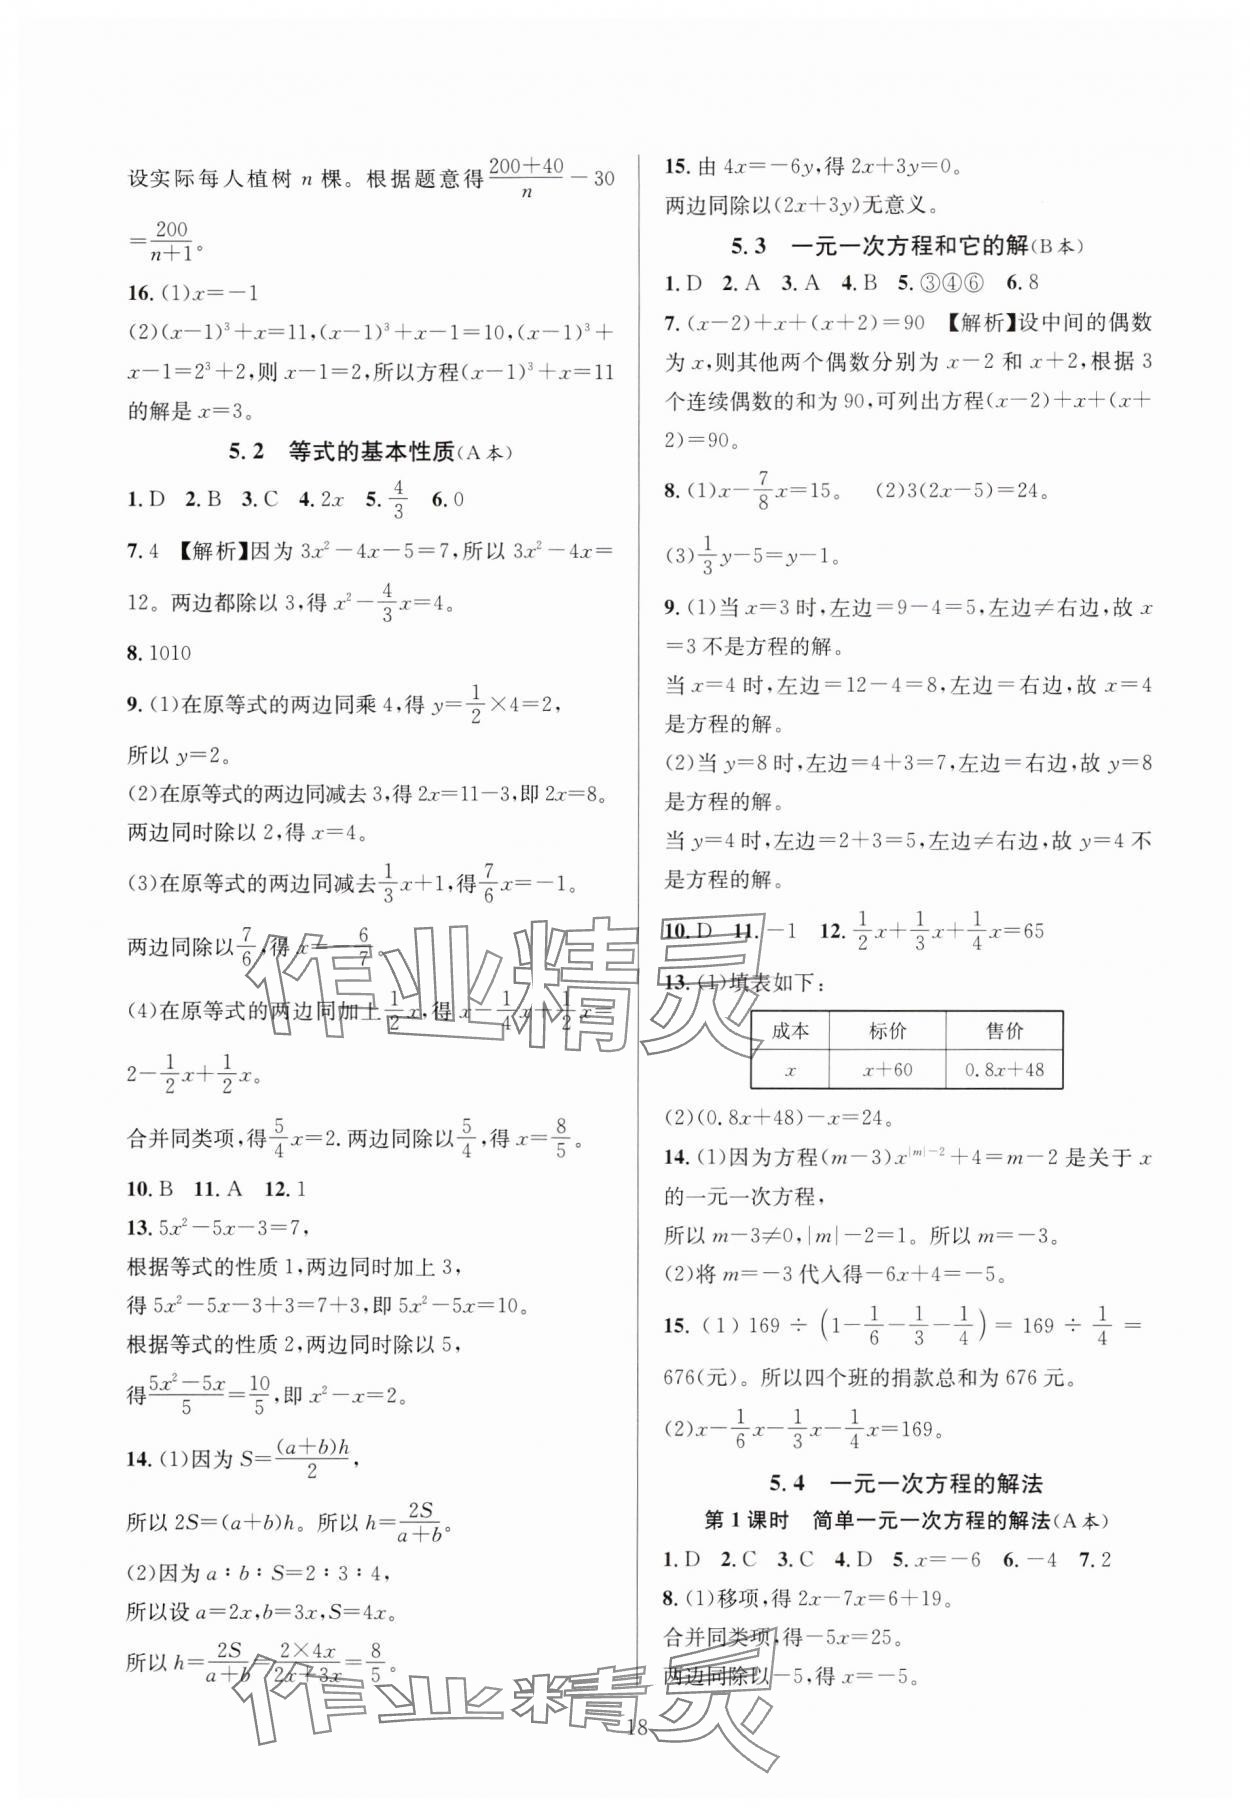 设实际每人植树 n 棵。根据题意得\frac{200+40}{n}-30
=\frac{200}{n+1}。
16.(1)x=-1
(2)(x-1)³+x=11,(x-1)³+x-1=10,(x-1)³+
x-1=2³+2,则 x-1=2,所以方程(x-1)³+x=11
的解是 x=3。
5.2 等式的基本性质(A本)
1.D 2.B 3.C 4.2x 5.\frac{4}{3} 6.0
7.4 【解析】因为 3x²-4x-5=7,所以 3x²-4x=
12。两边都除以 3,得 x²-\frac{4}{3}x=4。
8.1010
9.(1)在原等式的两边同乘 4,得 y=\frac{1}{2}×4=2,
所以 y=2。
(2)在原等式的两边同减去 3,得 2x=11-3,即 2x=8。
两边同时除以 2,得 x=4。
(3)在原等式的两边同减去\frac{1}{3}x+1,得\frac{7}{6}x=-1。
两边同除以\frac{7}{6},得 x=-\frac{6}{7}。
(4)在原等式的两边同加上\frac{1}{2}x,得 x-\frac{1}{4}x+\frac{1}{2}x=
2-\frac{1}{2}x+\frac{1}{2}x。
合并同类项,得\frac{5}{4}x=2.两边同除以\frac{5}{4},得 x=\frac{8}{5}。
10.B 11.A 12.1
13.5x²-5x-3=7,
根据等式的性质 1,两边同时加上 3,
得 5x²-5x-3+3=7+3,即 5x²-5x=10。
根据等式的性质 2,两边同时除以 5,
得\frac{5x²-5x}{5}=\frac{10}{5},即 x²-x=2。
14.(1)因为 S=\frac{(a+b)h}{2},
所以 2S=(a+b)h。所以 h=\frac{2S}{a+b}。
(2)因为 a:b:S=2:3:4,
所以设 a=2x,b=3x,S=4x。
所以 h=\frac{2S}{a+b}=\frac{2×4x}{2x+3x}=\frac{8}{5}。
15.由 4x=-6y,得 2x+3y=0。
两边同除以(2x+3y)无意义。
5.3 一元一次方程和它的解(B本)
1.D 2.A 3.A 4.B 5.③④⑥ 6.8
7.(x-2)+x+(x+2)=90 【解析】设中间的偶数
为 x,则其他两个偶数分别为 x-2 和 x+2,根据 3
个连续偶数的和为 90,可列出方程(x-2)+x+(x+
2)=90。
8.(1)x-\frac{7}{8}x=15。 (2)3(2x-5)=24。
(3)\frac{1}{3}y-5=y-1。
9.(1)当 x=3 时,左边=9-4=5,左边≠右边,故 x
=3 不是方程的解。
当 x=4 时,左边=12-4=8,左边=右边,故 x=4
是方程的解。
(2)当 y=8 时,左边=4+3=7,左边=右边,故 y=8
是方程的解。
当 y=4 时,左边=2+3=5,左边≠右边,故 y=4 不
是方程的解。
10.D 11.-1 12.\frac{1}{2}x+\frac{1}{3}x+\frac{1}{4}x=65
13.(1)填表如下:
成本 标价 售价
x x+60 0.8x+48
(2)(0.8x+48)-x=24。
14.(1)因为方程(m-3)x^{|m|-2}+4=m-2 是关于 x
的一元一次方程,
所以 m-3≠0,|m|-2=1。所以 m=-3。
(2)将 m=-3 代入得-6x+4=-5。
15.(1)169÷(1-\frac{1}{6}-\frac{1}{3}-\frac{1}{4})=169÷\frac{1}{4}=
676(元)。所以四个班的捐款总和为 676 元。
(2)x-\frac{1}{6}x-\frac{1}{3}x-\frac{1}{4}x=169。
5.4 一元一次方程的解法
第1课时 简单一元一次方程的解法(A本)
1.D 2.C 3.C 4.D 5.x=-6 6.-4 7.2
8.(1)移项,得 2x-7x=6+19。
合并同类项,得-5x=25。
两边同除以-5,得 x=-5。
18
作业精灵
作业精灵